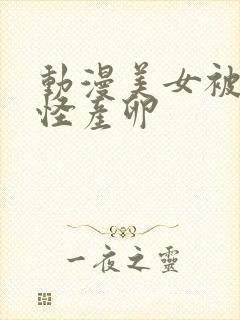 動漫美女被
怪產卵
一夜之靈